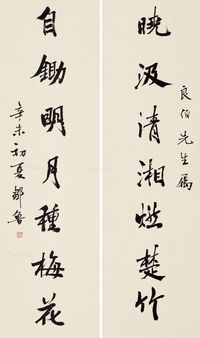 曉汲清湘燃楚竹
良伯先生屬
自鋤明月種梅花
辛未初夏鄒魯